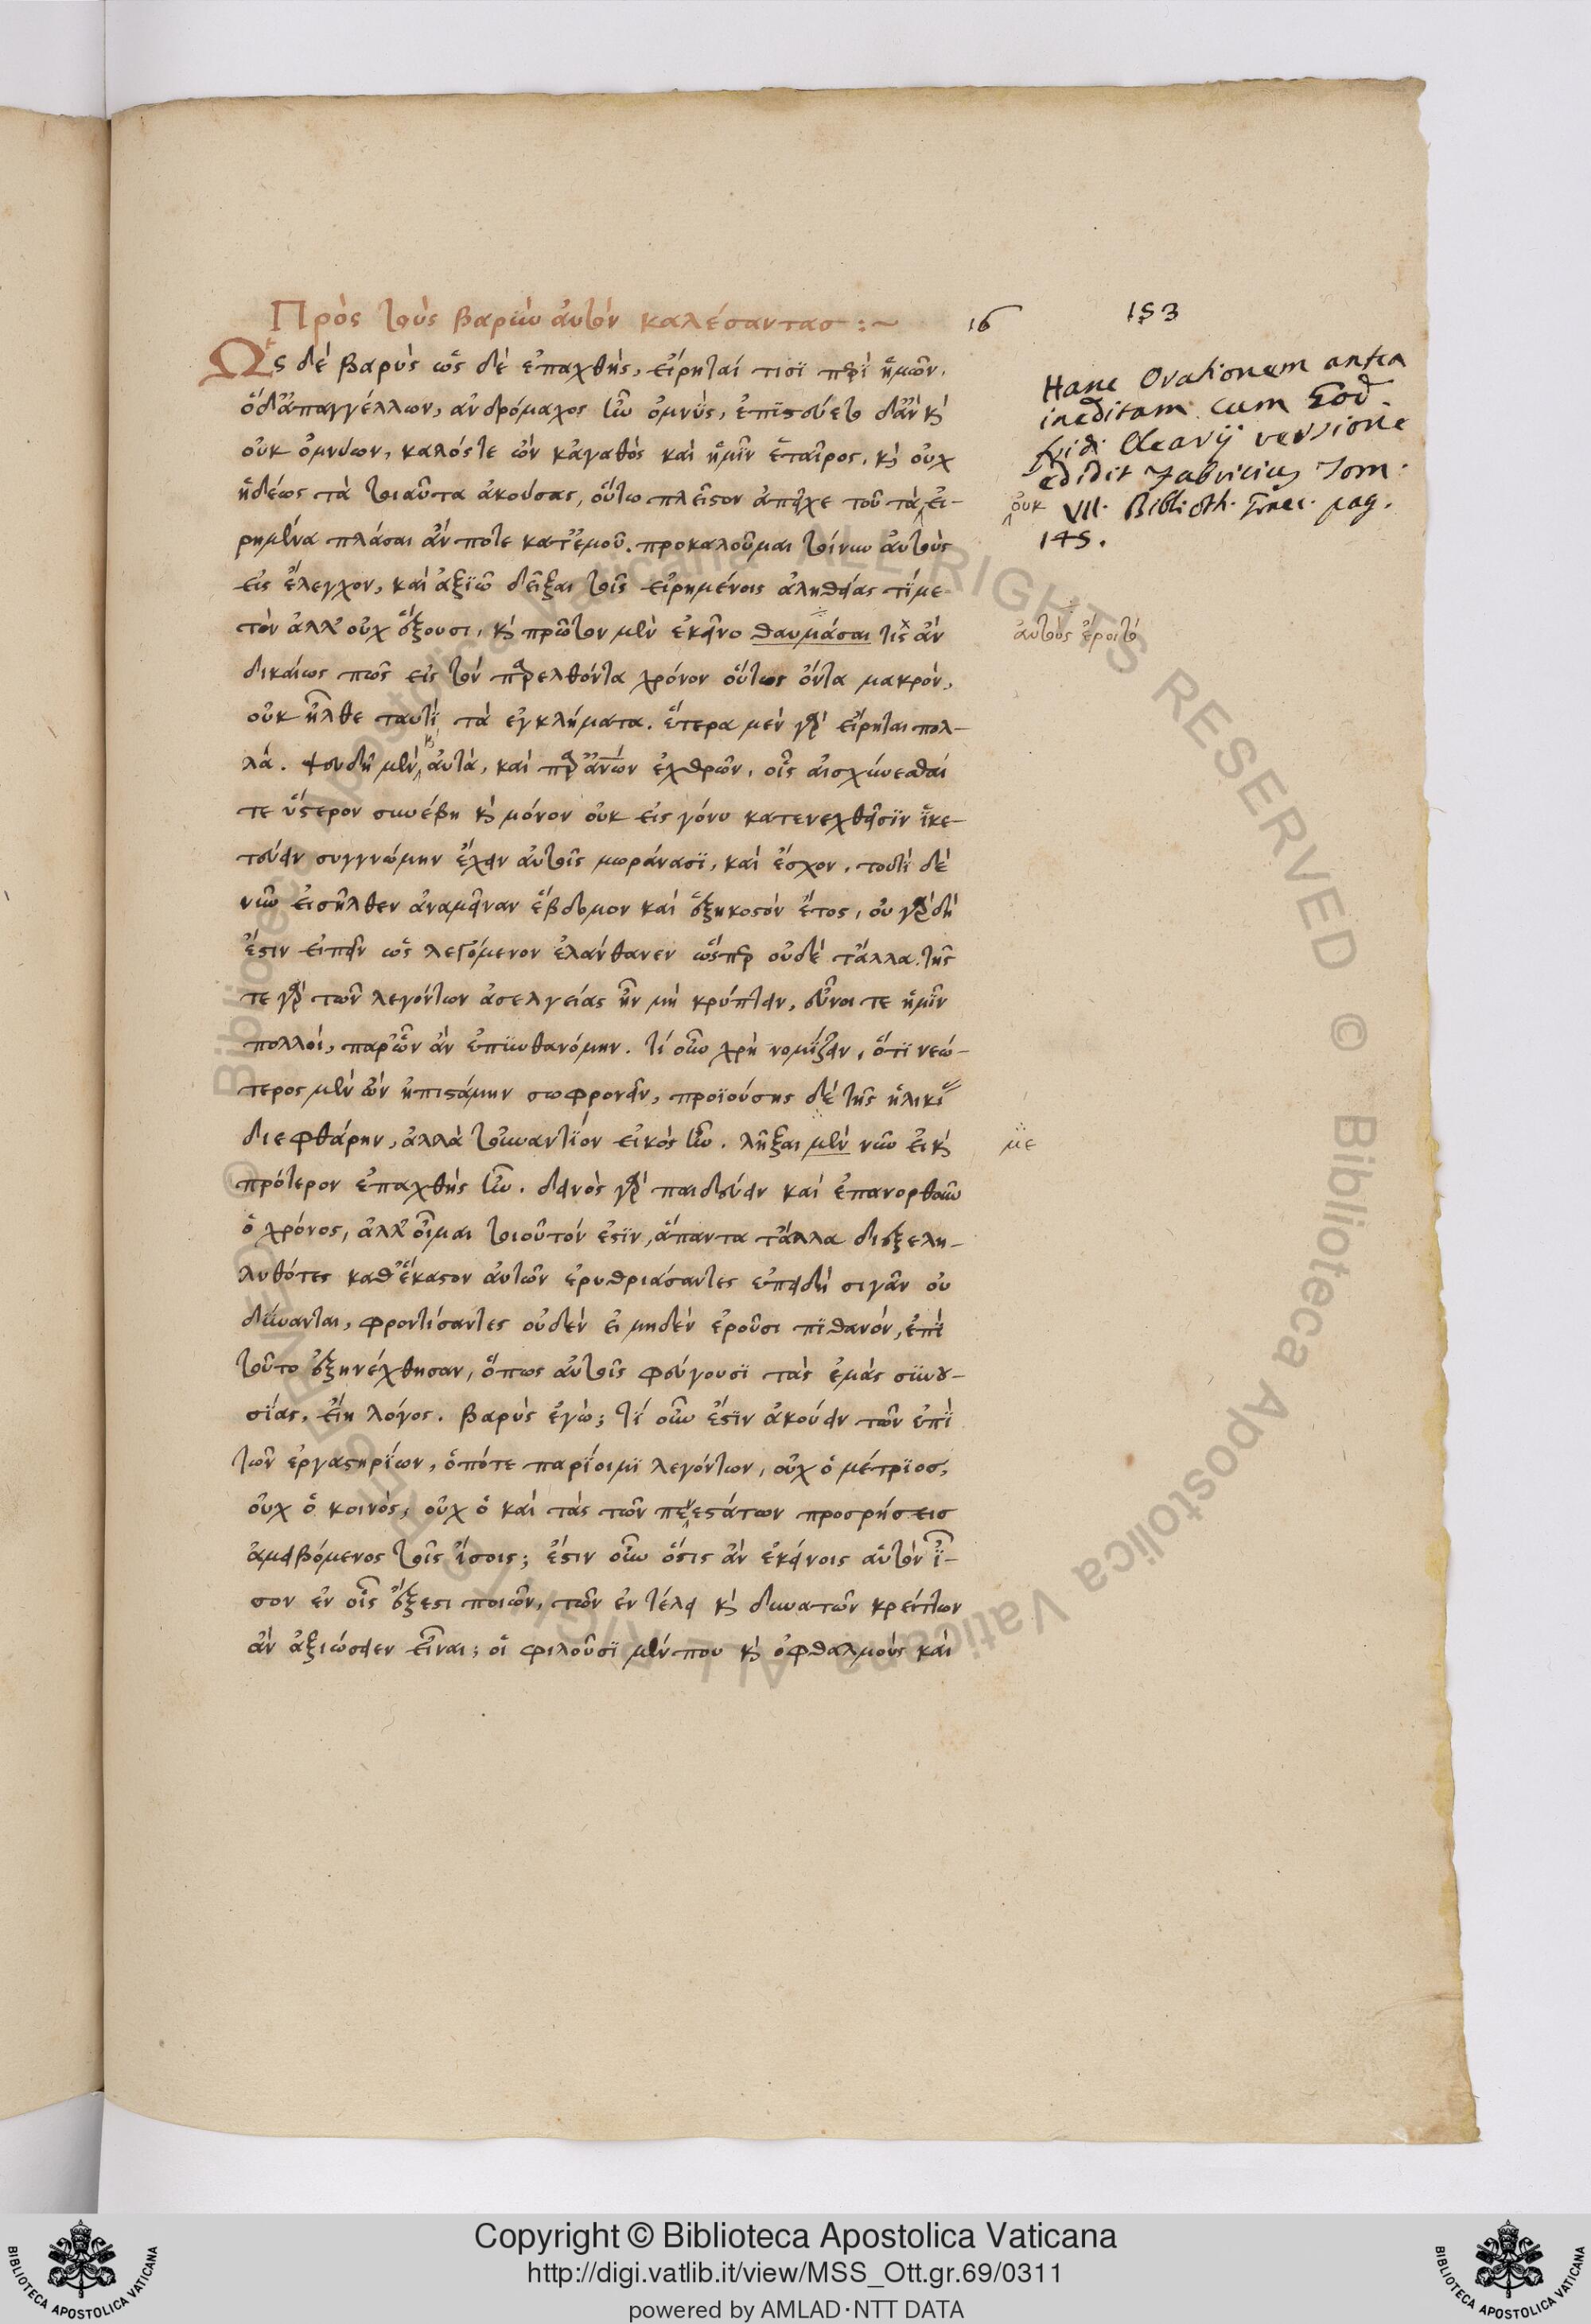 Πρὸς τοὺς βαρὺν αὐτὸν καλέσαντας :~
16
153
Ὡς δὲ βαρὺς ὡς δὲ ἐπαχθὴς, εἴρηταί τισι περὶ ἡμῶν.
ὁ δ' ἀπαγγέλλων, ἀνδρόμαχος ἦν ὀμνὺς, ἐπιστεύετο δ' ἂν καὶ
οὐκ ὀμνύων, καλός τε ὢν κἀγαθὸς καὶ ἡμῖν ἑταῖρος. καὶ οὐχ
ἡδέως τὰ τοιαῦτα ἀκούσας, οὕτω πλεῖστον ἀπεῖχε τοῦ τὰ εἰ-
ρημένα πλάσαι ἄν ποτε κατ' ἐμοῦ. προκαλοῦμαι τοίνυν αὐτοὺς
εἰς ἔλεγχον, καὶ ἀξιῶ δεῖξαι τοῖς εἰρημένοις ἀληθείας τί με-
τὸν ἀλλ' οὐχ ἕξουσι. καὶ πρῶτον μὲν ἐκεῖνο θαυμάσαι τις ἂν
δικαίως πῶς εἰς τὸν παρελθόντα χρόνον οὕτως ὄντα μακρὸν,
οὐκ ἦλθε ταυτὶ τὰ ἐγκλήματα. ἕτερα μὲν γὰρ εἴρηται πολ-
λά. ψευδῆ μὲν αὐτὰ, καὶ παρ' ἀνθρώπων ἐχθρῶν, οἷς αἰσχύνεσθαί
τε ὕστερον συνέβη καὶ μόνον οὐκ εἰς γόνυ κατενεχθεῖσιν ἱκε-
τεύειν συγγνώμην ἔχειν αὐτοῖς μωράνασι, καὶ ἔσχον. τουτὶ δὲ
νῦν εἰσῆλθεν ἀναμεῖναν ἕβδομον καὶ ἑξηκοστὸν ἔτος, οὐ γὰρ δή
ἔστιν εἰπεῖν ὡς λεγόμενον ἐλάνθανεν ὥσπερ οὐδὲ τἄλλα. τῆς
τε γὰρ τῶν λεγόντων ἀσελγείας ἦν μὴ κρύπτειν, εὖνοί τε ἡμῖν
πολλοὶ, παρ' ὧν ἂν ἐπυνθανόμην. τί οὖν χρὴ νομίζειν, ὅτι νεώ-
τερος μὲν ὢν ἠπιστάμην σωφρονεῖν, προϊούσης δὲ τῆς ἡλικίας
διεφθάρην, ἀλλὰ τοὐναντίον εἰκὸς ἦν. λῆξαι μὲν νῦν εἰ καὶ
πρότερον ἐπαχθὴς ἦν. δεινὸς γὰρ παιδεύειν καὶ ἐπανορθοῦν
ὁ χρόνος, ἀλλ' οἶμαι τοιοῦτόν ἐστιν, ἅπαντα τἄλλα διεξελη-
λυθότες καθ' ἕκαστον αὐτῶν ἐρυθριάσαντες ἐπειδὴ σιγᾶν οὐ
δύνανται, φροντίσαντες οὐδὲν εἰ μηδὲν ἐροῦσι πιθανὸν, ἐπὶ
τοῦτο ἐξηνέχθησαν, ὅπως αὐτοῖς φεύγουσι τὰς ἐμὰς συνου-
σίας, εἴη λόγος. βαρὺς ἐγώ; τί οὖν ἔστιν ἀκούειν τῶν ἐπὶ
τῶν ἐργαστηρίων, ὁπότε παρίοιμι λεγόντων, οὐχ ὁ μέτριος,
οὐχ ὁ κοινὸς, οὐχ ὁ καὶ τὰς τῶν πενεστάτων προσρήσεις
ἀμειβόμενος τοῖς ἴσοις; ἔστιν οὖν ὅστις ἂν ἐκείνοις αὑτὸν ἴ-
σον ἐν οἷς ἔξεστι ποιῶν, τῶν ἐν τέλει καὶ δυνατῶν κρείττων
ἂν ἀξιώσειεν εἶναι; οἳ φιλοῦσι μέν που καὶ ὀφθαλμοὺς καὶ
Hanc Orationem antea
ineditam cum God.
fridi Olearij versione
edidit Fabricius Tom.
VII. Biblioth. Graec. pag.
145.
οὐκ
αὐτοὺς ἔροιτο
με
Copyright © Biblioteca Apostolica Vaticana
http://digi.vatlib.it/view/MSS_Ott.gr.69/0311
powered by AMLAD·NTT DATA
BIBLIOTECA APOSTOLICA VATICANA
BIBLIOTECA APOSTOLICA VATICANA
© Biblioteca Apostolica Vaticana ALL RIGHTS RESERVED © Biblioteca Apostolica Vaticana ALL RIGHTS RESERVED